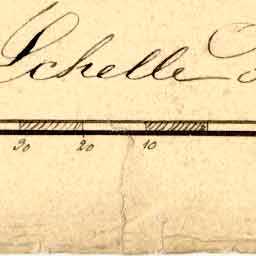 Schelle
30 20 10